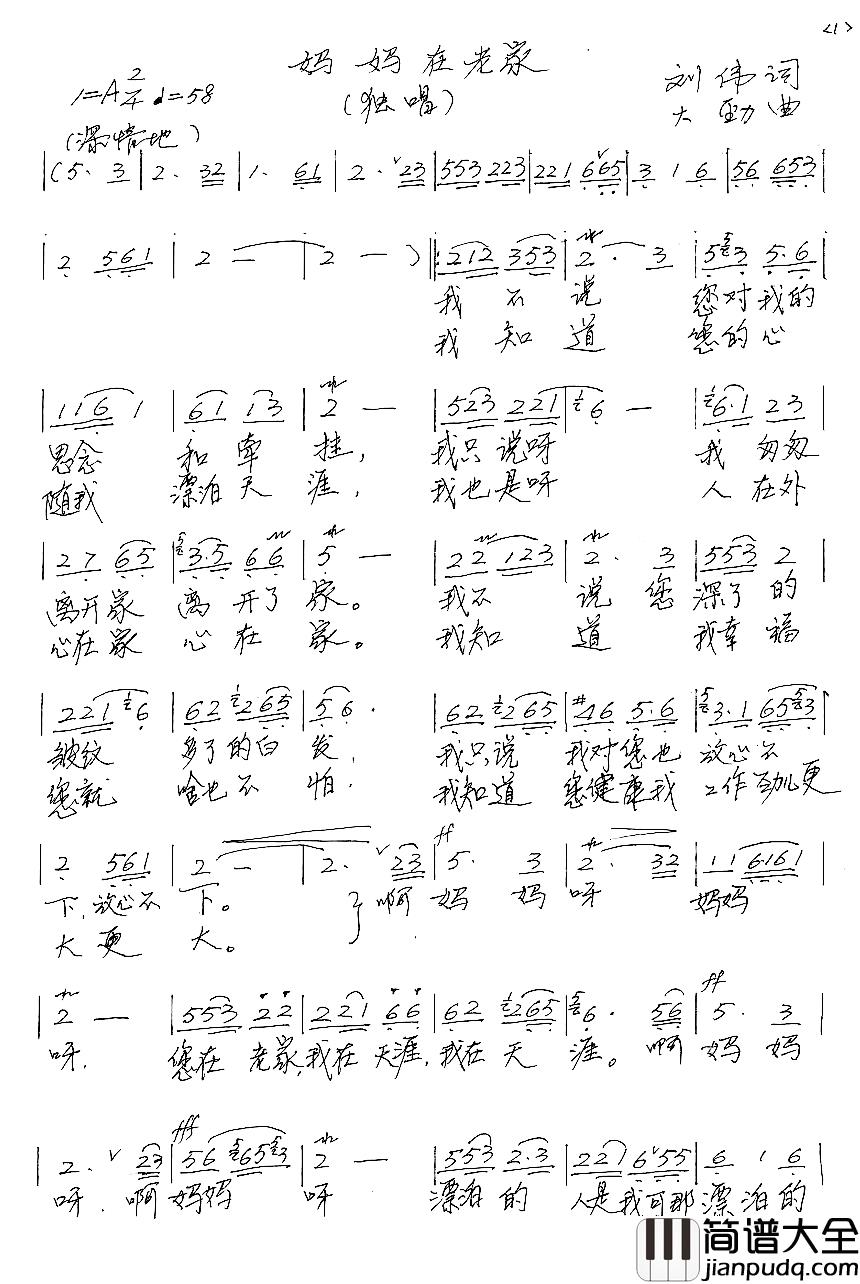 <1>
妈妈在老家
1=A 2/4 ♩=58
(独唱)
刘伟词
大勁曲
(深情地)
|(5. 3|2. 32|1. 61|2. ∨23|553 223|221 6∨65|3 1 6|56 653|
|2 561|2 —|2 — )‖:212 353|2. 3|553 5.6|
我不说 您对我的
我知道 您的心
|116 1|61 13|2 —|523 221|6 —|6.1 23|
思念 和牵挂, 我只说呀 我匆匆
随我 漂泊天涯, 我也是呀 人在外
|27 65|3.5 66|5 —|22 123|2. 3|553 2|
离开家 离开了家。 我不说您深了的
心在家 心在家。 我知道 我幸福
|221 6|62 265|56.|62 265|#46 5.6|3.1 653|
皱纹 多了的白发, 我只说 我对您也放心不
您就 啥也不怕. 我知道 您健康我工作劲儿更
|2 561|2 —|2. ∨23|ff 5. 3|2. 32|11 6161|
下,放心不下。 啊妈妈呀 妈妈
大更大。
|2 —|553 22|221 66|62 265|6. 56|ff 5. 3|
呀, 您在老家,我在天涯,我在天涯。啊妈妈
|2. ∨23|fff 56 653|2 —|553 2.3|221 6∨55|6 1 6|
呀.啊妈妈呀 漂泊的人是我可那漂泊的
简谱大全
jianpudq.com